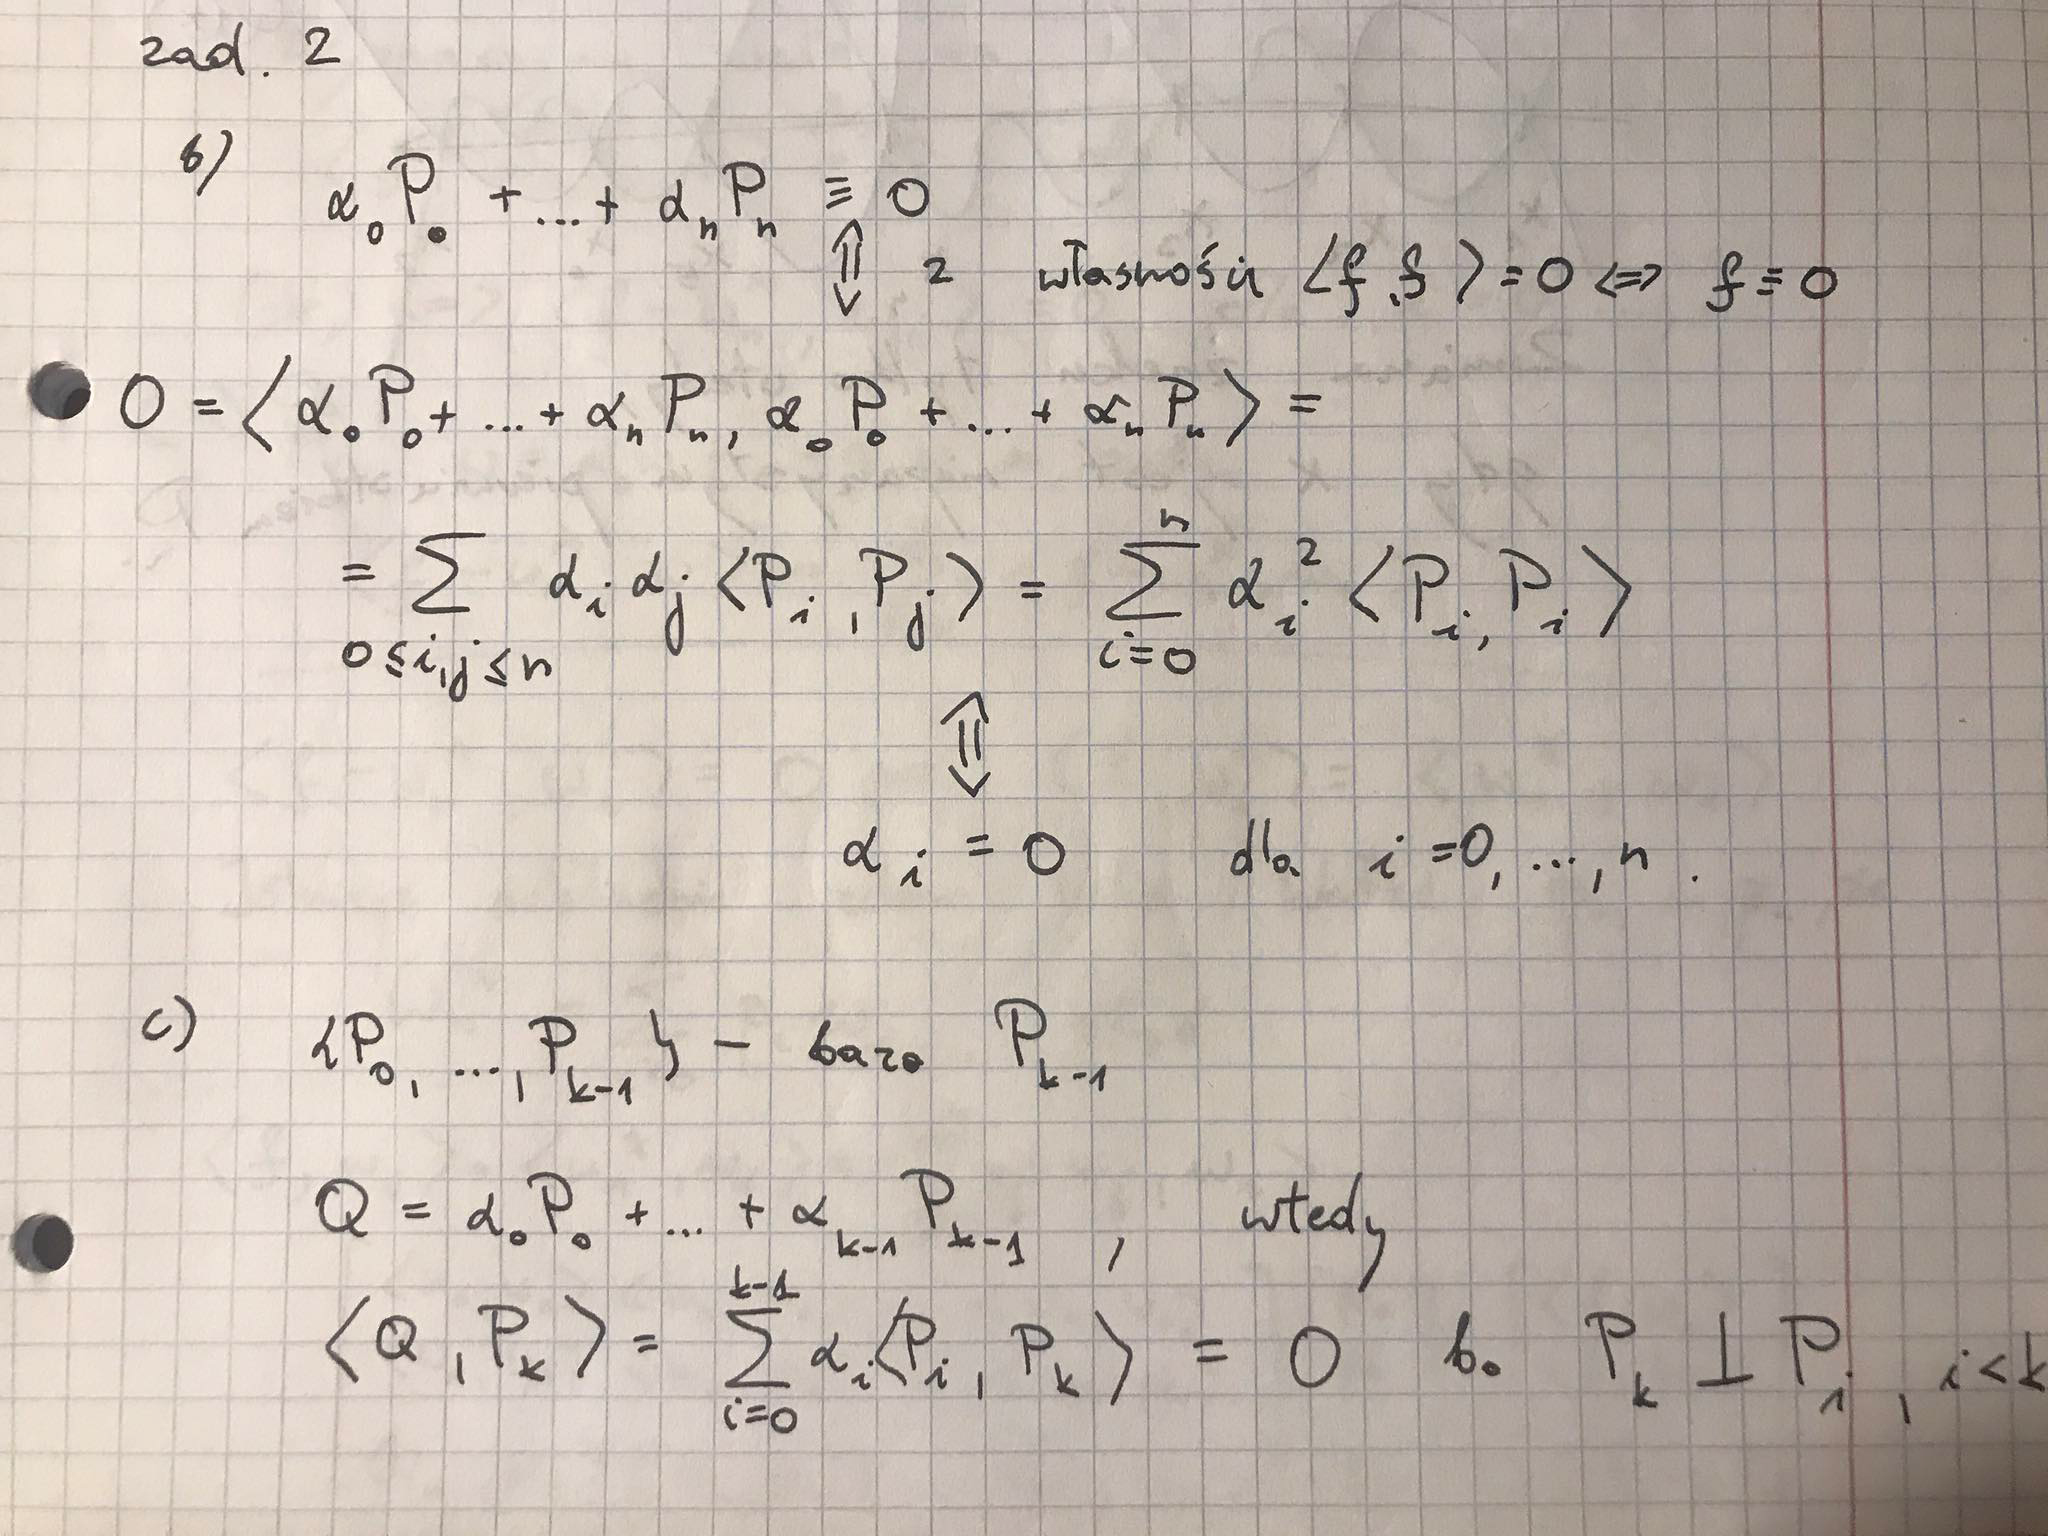 zad. 2
b) α₀P₀ + ... + αₙPₙ ≡ 0
⇕ z własności ⟨f,f⟩ = 0 ⇔ f ≡ 0
0 = ⟨α₀P₀ + ... + αₙPₙ, α₀P₀ + ... + αₙPₙ⟩ =
= ∑_{0≤i,j≤n} αᵢαⱼ⟨Pᵢ,Pⱼ⟩ = ∑_{i=0}^{n} αᵢ²⟨Pᵢ,Pᵢ⟩
⇕
αᵢ = 0 dla i=0, ..., n.
c) {P₀, ..., P_{k-1}} - baza P_{k-1}
Q = α₀P₀ + ... + α_{k-1}P_{k-1}, wtedy
⟨Q,P_k⟩ = ∑_{i=0}^{k-1} αᵢ⟨Pᵢ,P_k⟩ = 0 bo P_k ⊥ Pᵢ, i<k